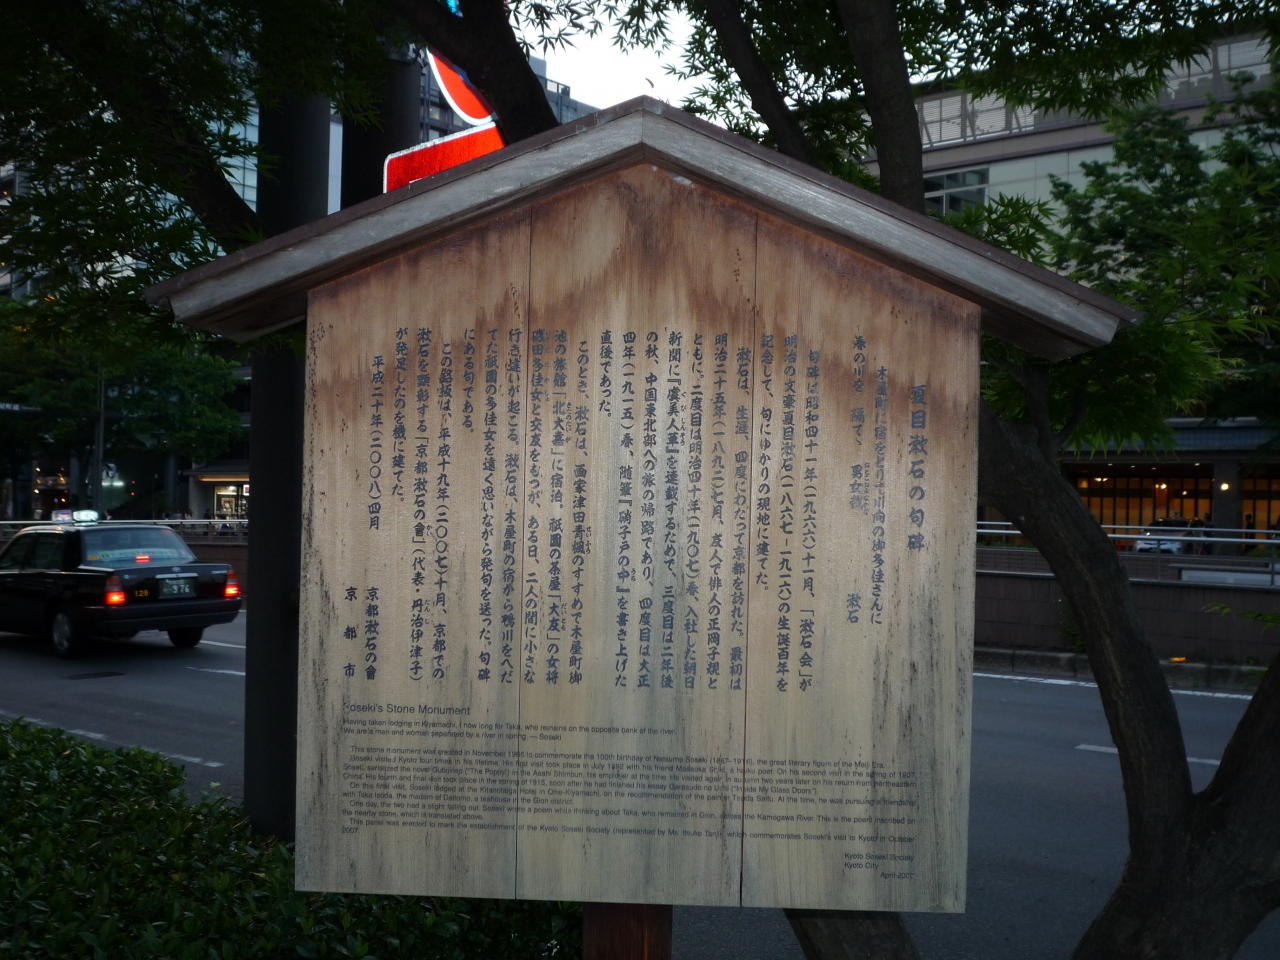 夏目漱石の句碑
木屋町に宿をとりて川向の御多佳さんに
春の川を 隔てゝ 男女哉 漱石
句碑は昭和四十一年(一九六六)十一月、「漱石会」が
明治の文豪夏目漱石(一八六七−一九一六)の生誕百年を
記念して、句にゆかりの現地に建てた。
漱石は、生涯、四度にわたって京都を訪れた。最初は
明治二十五年(一八九二)七月、友人で俳人の正岡子規と
ともに。二度目は明治四十年(一九〇七)春、入社した朝日
新聞に『虞美人草』を連載するためで、三度目は二年後
の秋、中国東北部への旅の帰路であり、四度目は大正
四年(一九一五)春、随筆『硝子戸の中』を書き上げた
直後であった。
このとき、漱石は、画家津田青楓のすすめで木屋町御
池の旅館「北大嘉」に宿泊。祇園の茶屋「大友」の女将
磯田多佳女と交友をもつが、ある日、二人の間に小さな
行き違いが起こる。漱石は、木屋町の宿から鴨川をへだ
てた祇園の多佳女を遠く思いながら発句を送った。句碑
にある句である。
この銘板は、平成十九年(二〇〇七)十月、京都での
漱石を顕彰する「京都漱石の會」(代表・丹治伊津子)
が発足したのを機に建てた。
平成二十年(二〇〇八)四月
京都漱石の會
京都市
Soseki's Stone Monument
Having taken lodging in Kiyamachi, I now long for Taka, who remains on the opposite bank of the river.
We are a man and woman separated by a river in spring. — Soseki
This stone monument was created in November 1966 to commemorate the 100th birthday of Natsume Soseki (1867-1916), the great literary figure of the Meiji Era.
Soseki visited Kyoto four times in his lifetime. His first visit took place in July 1892 with his friend Masaoka Shiki, a haiku poet. On his second visit in the spring of 1907,
Soseki serialized the novel Gubijinso ("The Poppy") in the Asahi Shimbun, his employer at the time. He visited again in autumn two years later on his return from northeastern
China. His fourth and final visit took place in the spring of 1915, soon after he had finished his essay Garasudo no Uchi ("Inside My Glass Doors").
On this first visit, Soseki lodged at the Kitanotaiga Hotel in Oike-Kiyamachi, on the recommendation of the painter Tsuda Seifu. At the time, he was pursuing a friendship
with Taka Isoda, the madam of Daitomo, a teahouse in the Gion district.
One day, the two had a slight falling out. Soseki wrote a poem while thinking about Taka, who remained in Gion, across the Kamogawa River. This is the poem inscribed on
the nearby stone, which is translated above.
This panel was erected to mark the establishment of the Kyoto Soseki Society (represented by Ms. Itsuko Tanji), which commemorates Soseki's visit to Kyoto in October
2007.
Kyoto Soseki Society
Kyoto City
April 2007
126
376